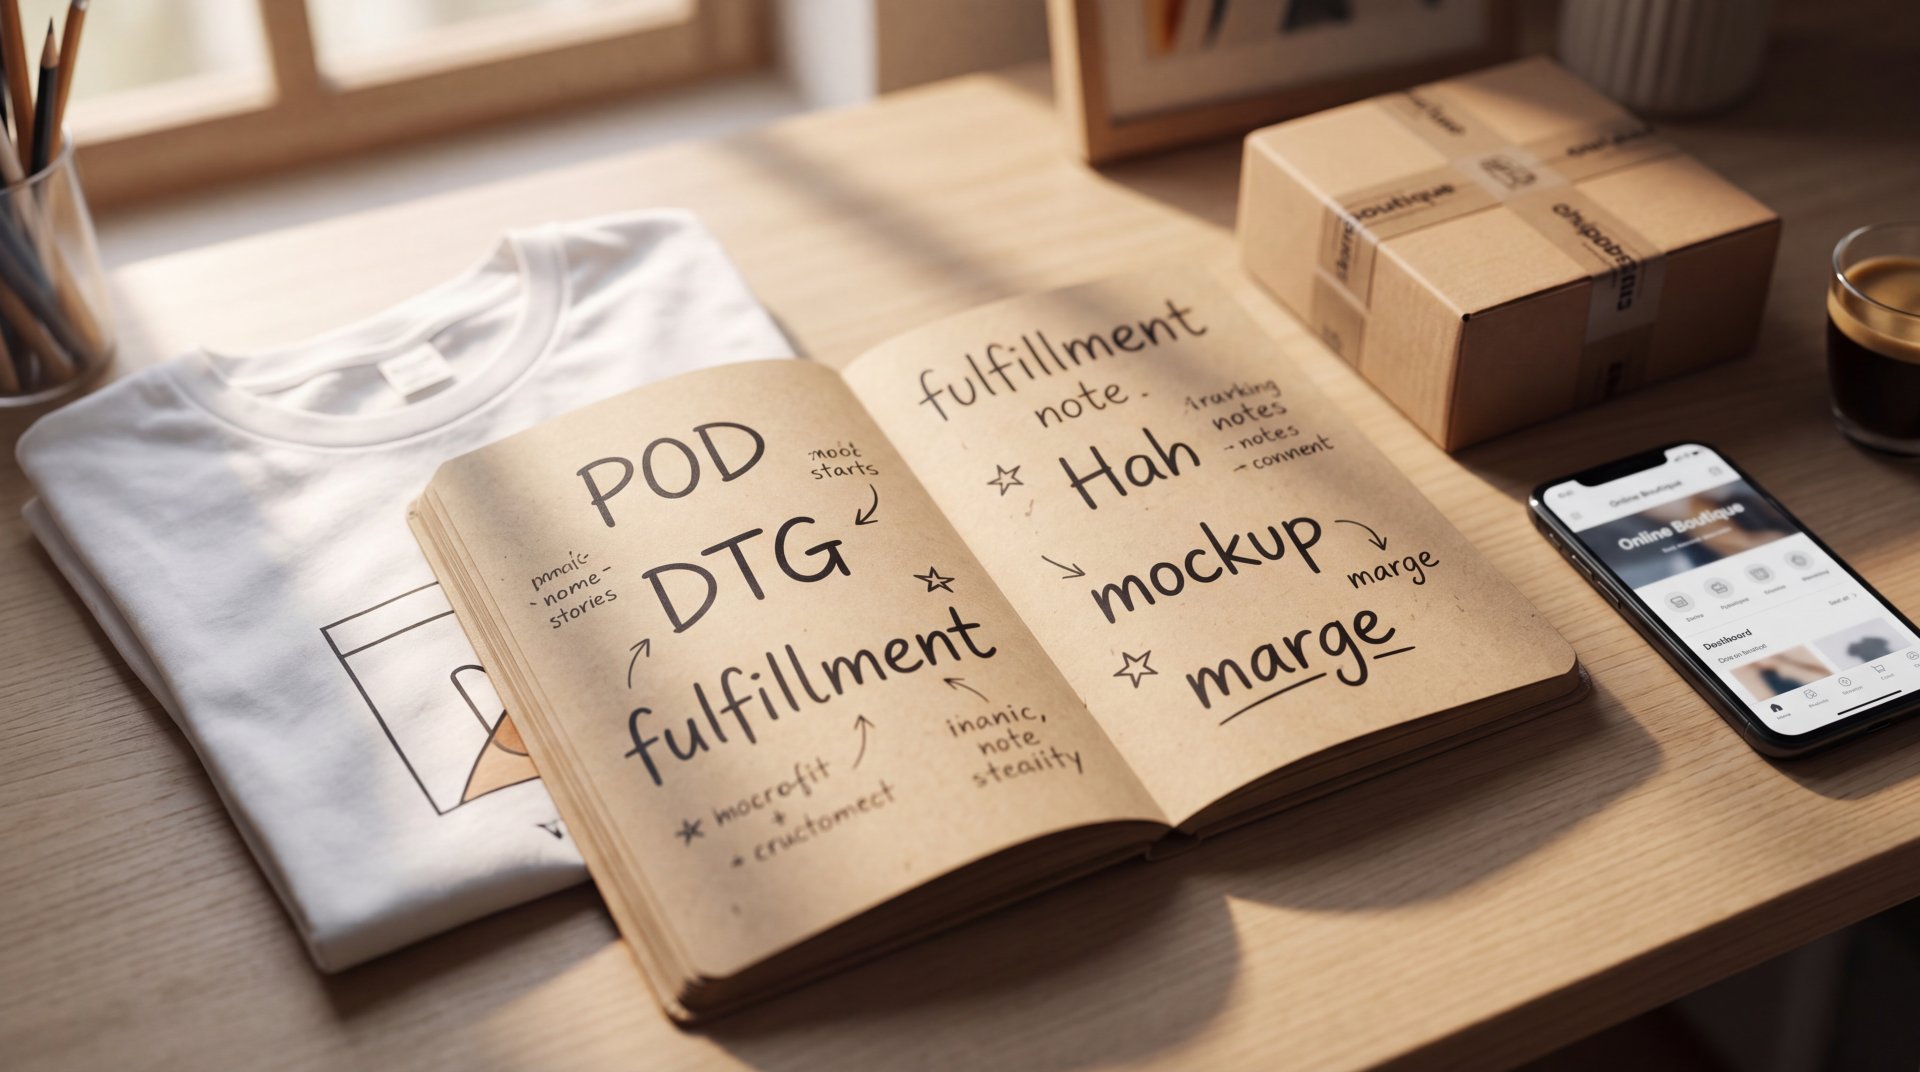 POD
moot
starts
DTG
nome-
stories
fulfillment
inanic,
note
steaiity
macrofit
+
+ cructomect
fulfillment
note.
notes
- notes
→ connent
Hah
mockup
marge
marge
boutique
Online Boutique
Online Boutique
Dashboard